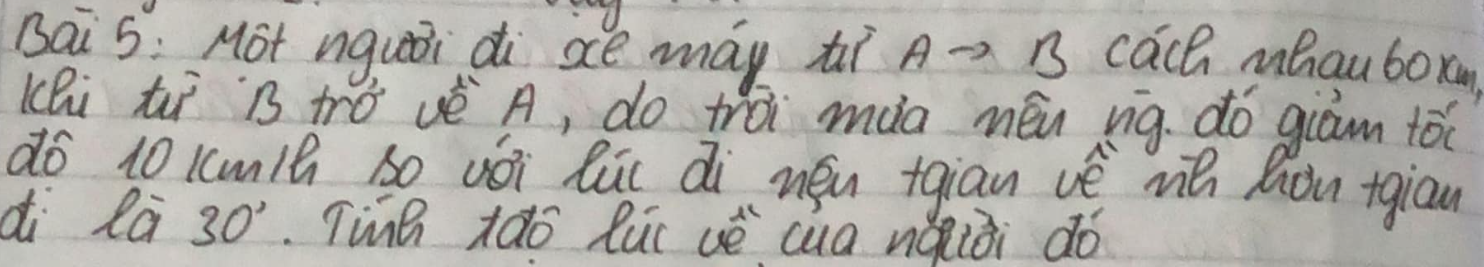 Bài 5: Một người đi xe máy từ A → B cách nhau 60km,
khi từ B trở về A, do trời mưa nên ng. đó giảm tốc
độ 10 km/h so với lúc đi nên tgian về nh hơn tgian
đi là 30'. Tính tđộ lúc về của người đó